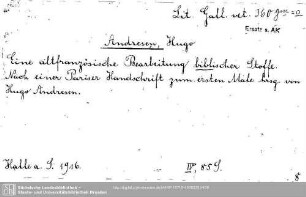 Lit. Gall. vet. 360
Ersatz a. AK
Andresen, Hugo
Eine altfranzösische Bearbeitung biblischer Stoffe.
Nach einer Pariser Handschrift zum ersten Male hrsg. von
Hugo Andresen.
Halle a. S. 1916. IV, 85 S.
8
Sächsische Landesbibliothek -
Staats- und Universitätsbibliothek Dresden